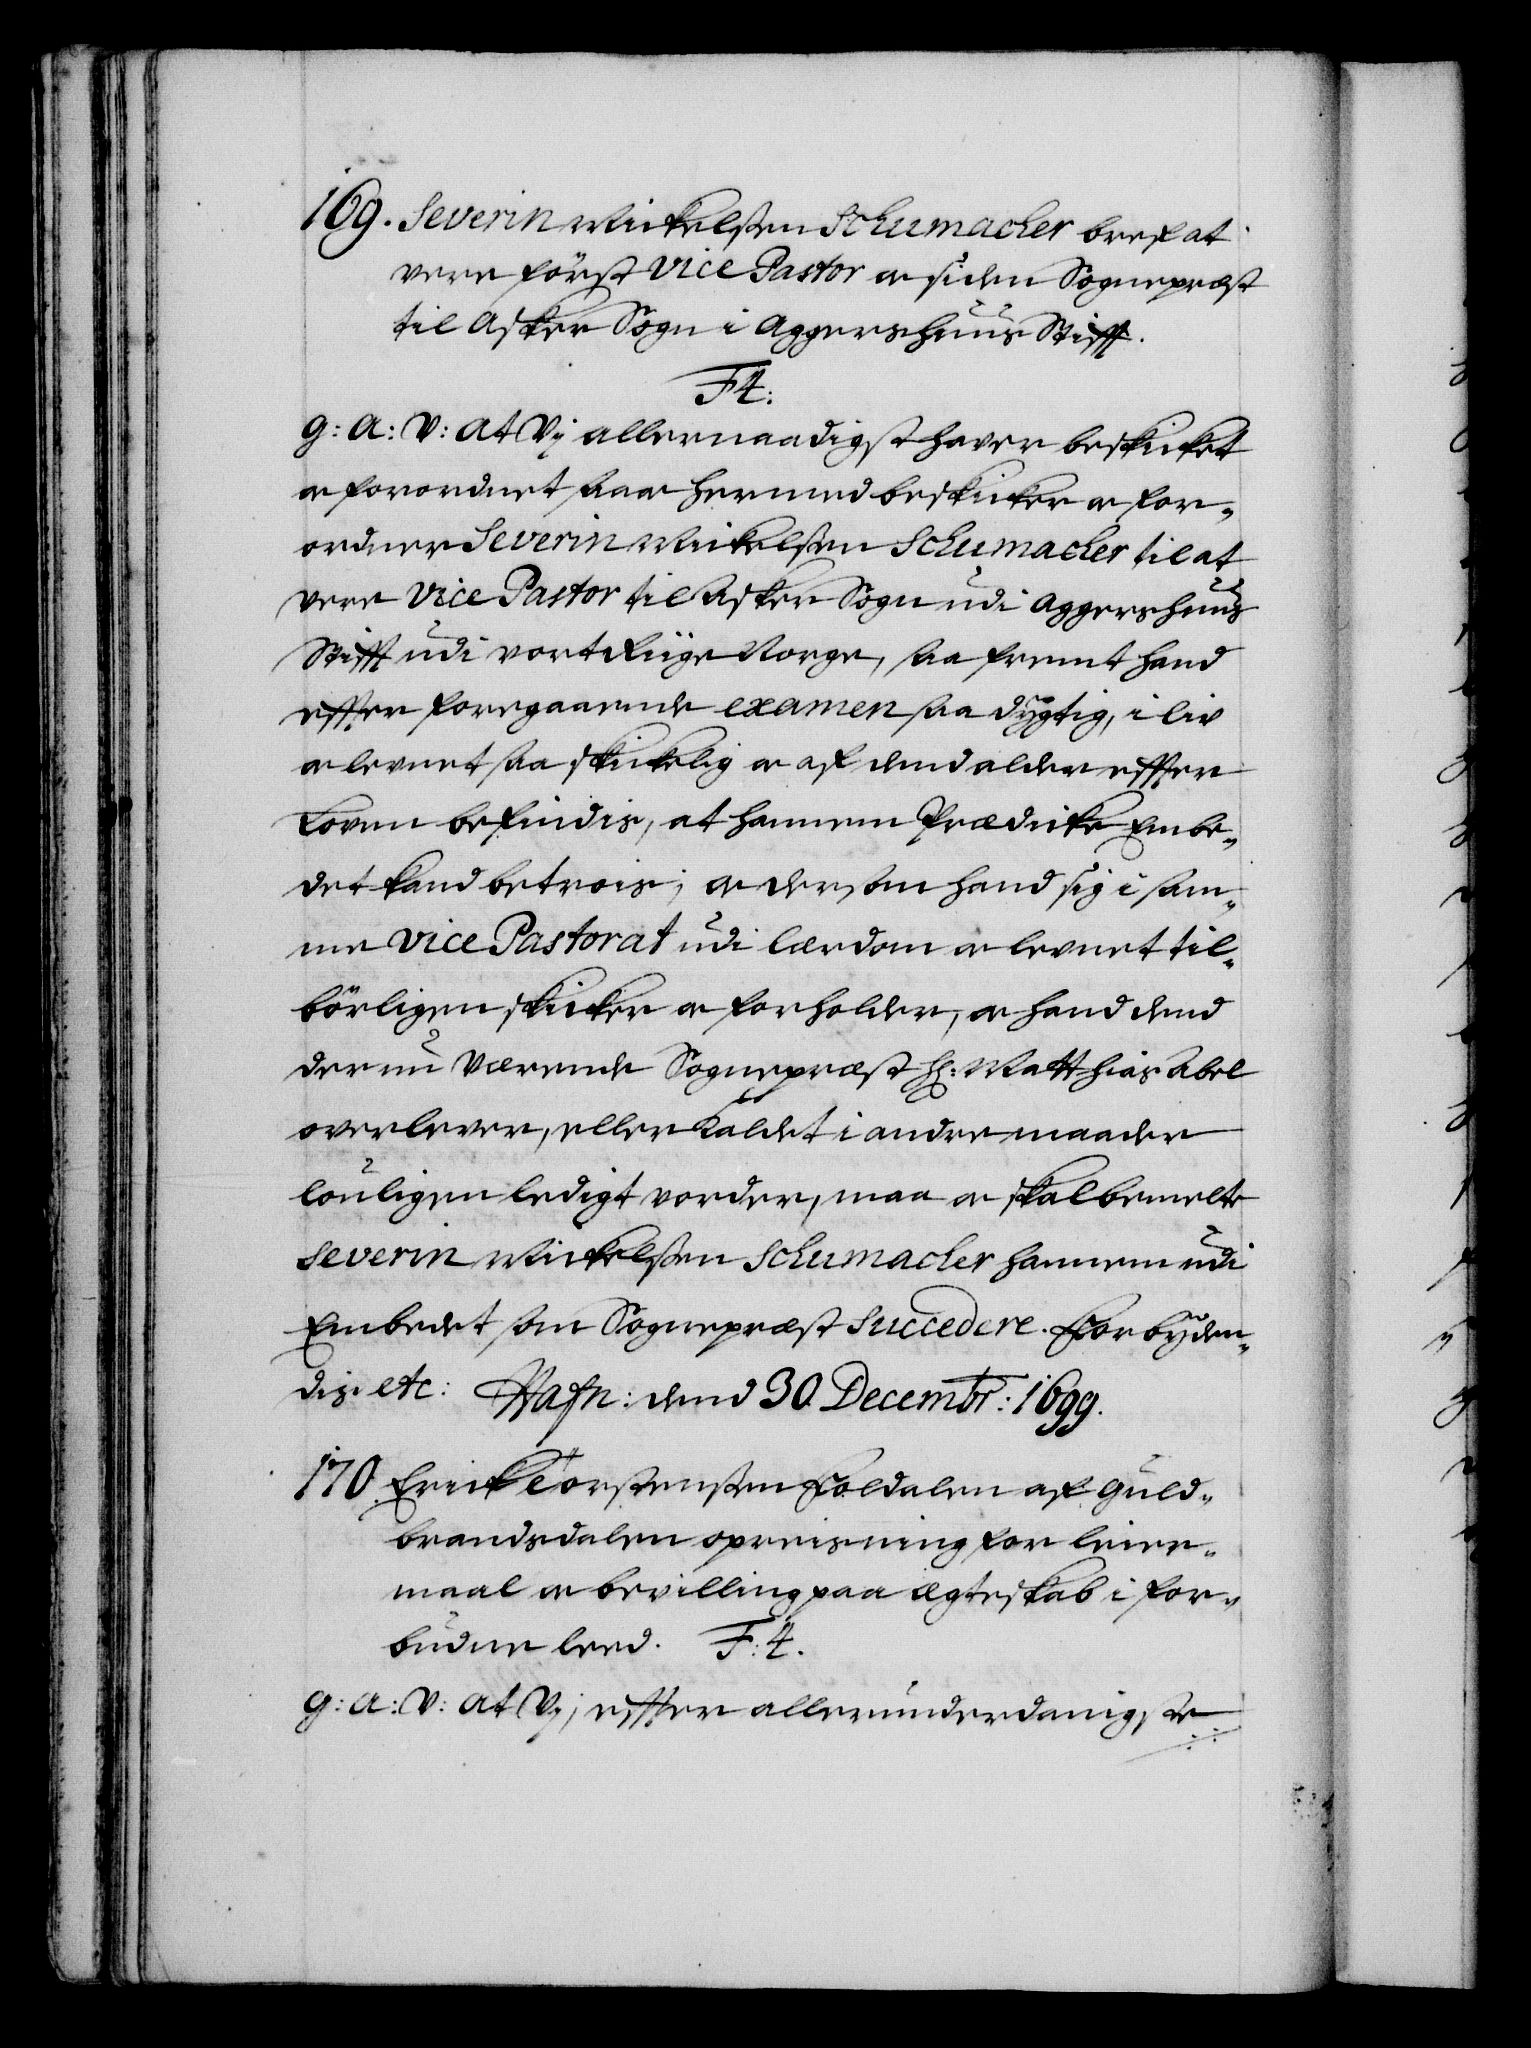 169. Severin Mickelßen Schumacher bref at
vere först Vice Pastor oc siden Sognepræst
til Asker Sogn i Aggershuus Stifft.
F4:
G: A: V: at Vj allernaadigst haver beskicket
oc forordnet saa oc hermed beskicker oc for-
ordner Severin Mickelßen Schumacher til at
vere Vice Pastor til Asker Sogn udi Aggershuus
Stifft udi vort Riige Norge, saa fremt hand
effter foregaaende examen saa dygtig, i liv
oc levnet saa skickelig oc af dend alder effter
Loven befindis, at hannem Prædicke Embe-
det kand betrois; oc dersom hand sig i sam-
me Vice Pastorat udi lærdom oc levnet til-
börligen skicker oc forholder, oc hand dend
der nu Værende Sognepræst Hr: Matthias Abel
overlever, eller Kaldet i andre maader
louligen ledigt vorder, maa oc skal bemelte
Severin Mickelßen Schumacher hannem udi
Embedet som Sognepræst Succedere. Forbyden-
dis etc: Hafn: dend 30 Decembr: 1699.
170 Erick Torstensßen Foldalen af Guld-
brandsdalen opreisning for leier-
maal oc bevilling paa ægteskab i for-
budne leed. F:4.
G: A: V: at Vj, effter allerunderdanigste